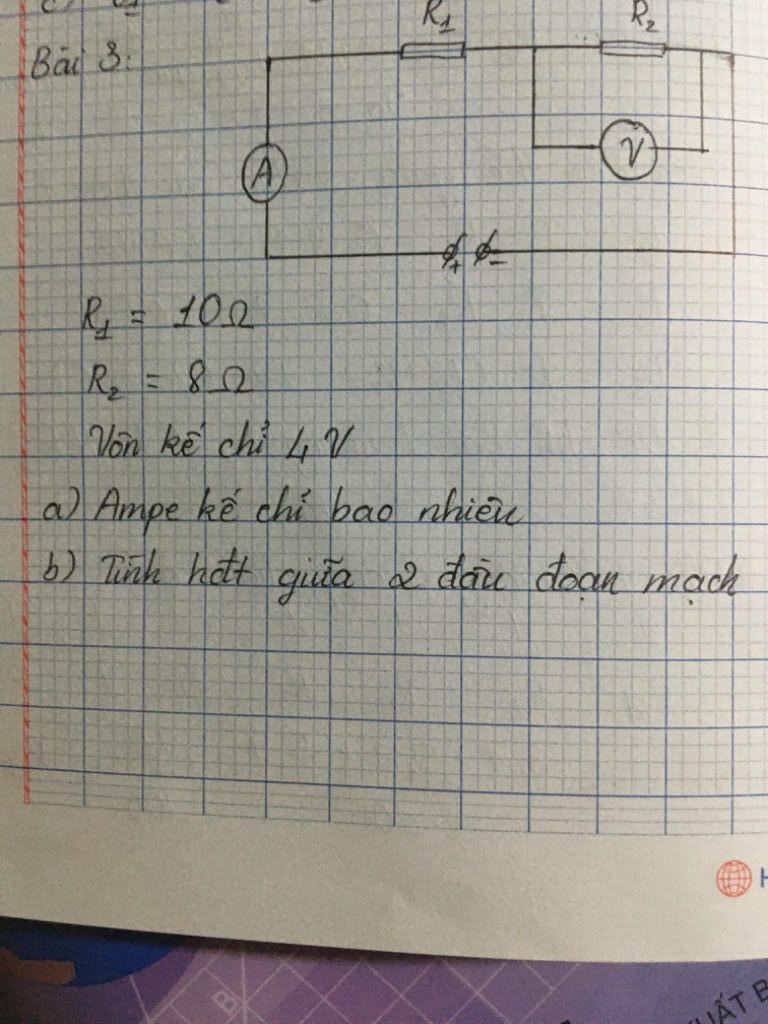 Bài 3:
R1 R2
A
V
+ -
R1 = 10Ω
R2 = 8Ω
Vôn kế chỉ 4V
a) Ampe kế chỉ bao nhiêu
b) Tính hđt giữa 2 đầu đoạn mạch
H
UẤT B